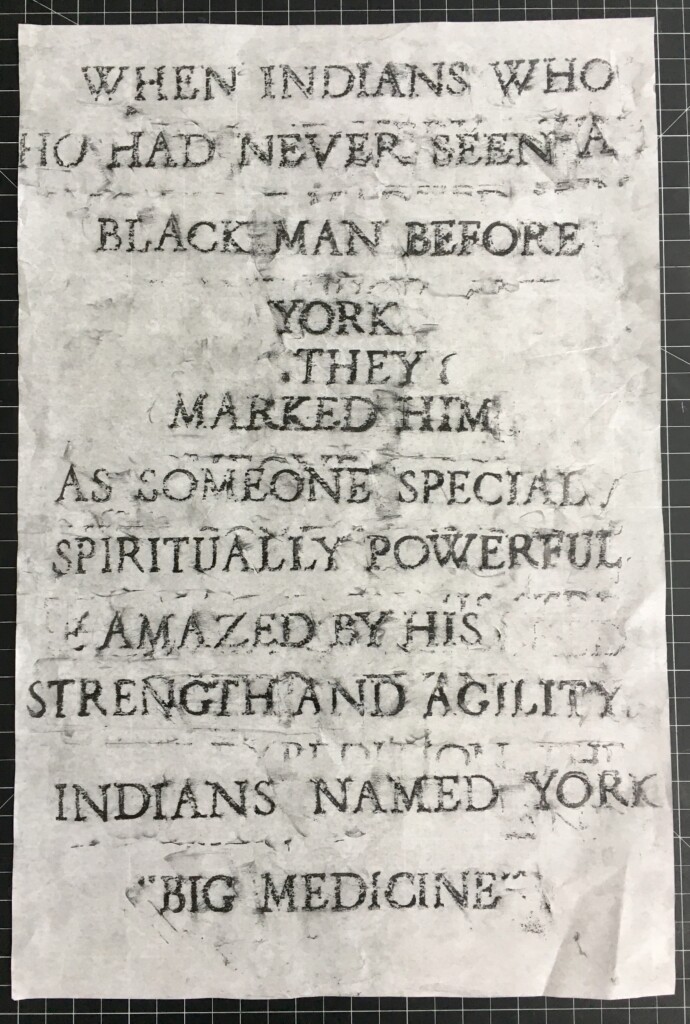 WHEN INDIANS WHO
HO HAD NEVER SEEN A
BLACK MAN BEFORE
YORK
THEY
MARKED HIM
AS SOMEONE SPECIAL
SPIRITUALLY POWERFUL
AMAZED BY HIS
STRENGTH AND AGILITY
INDIANS NAMED YORK
"BIG MEDICINE"